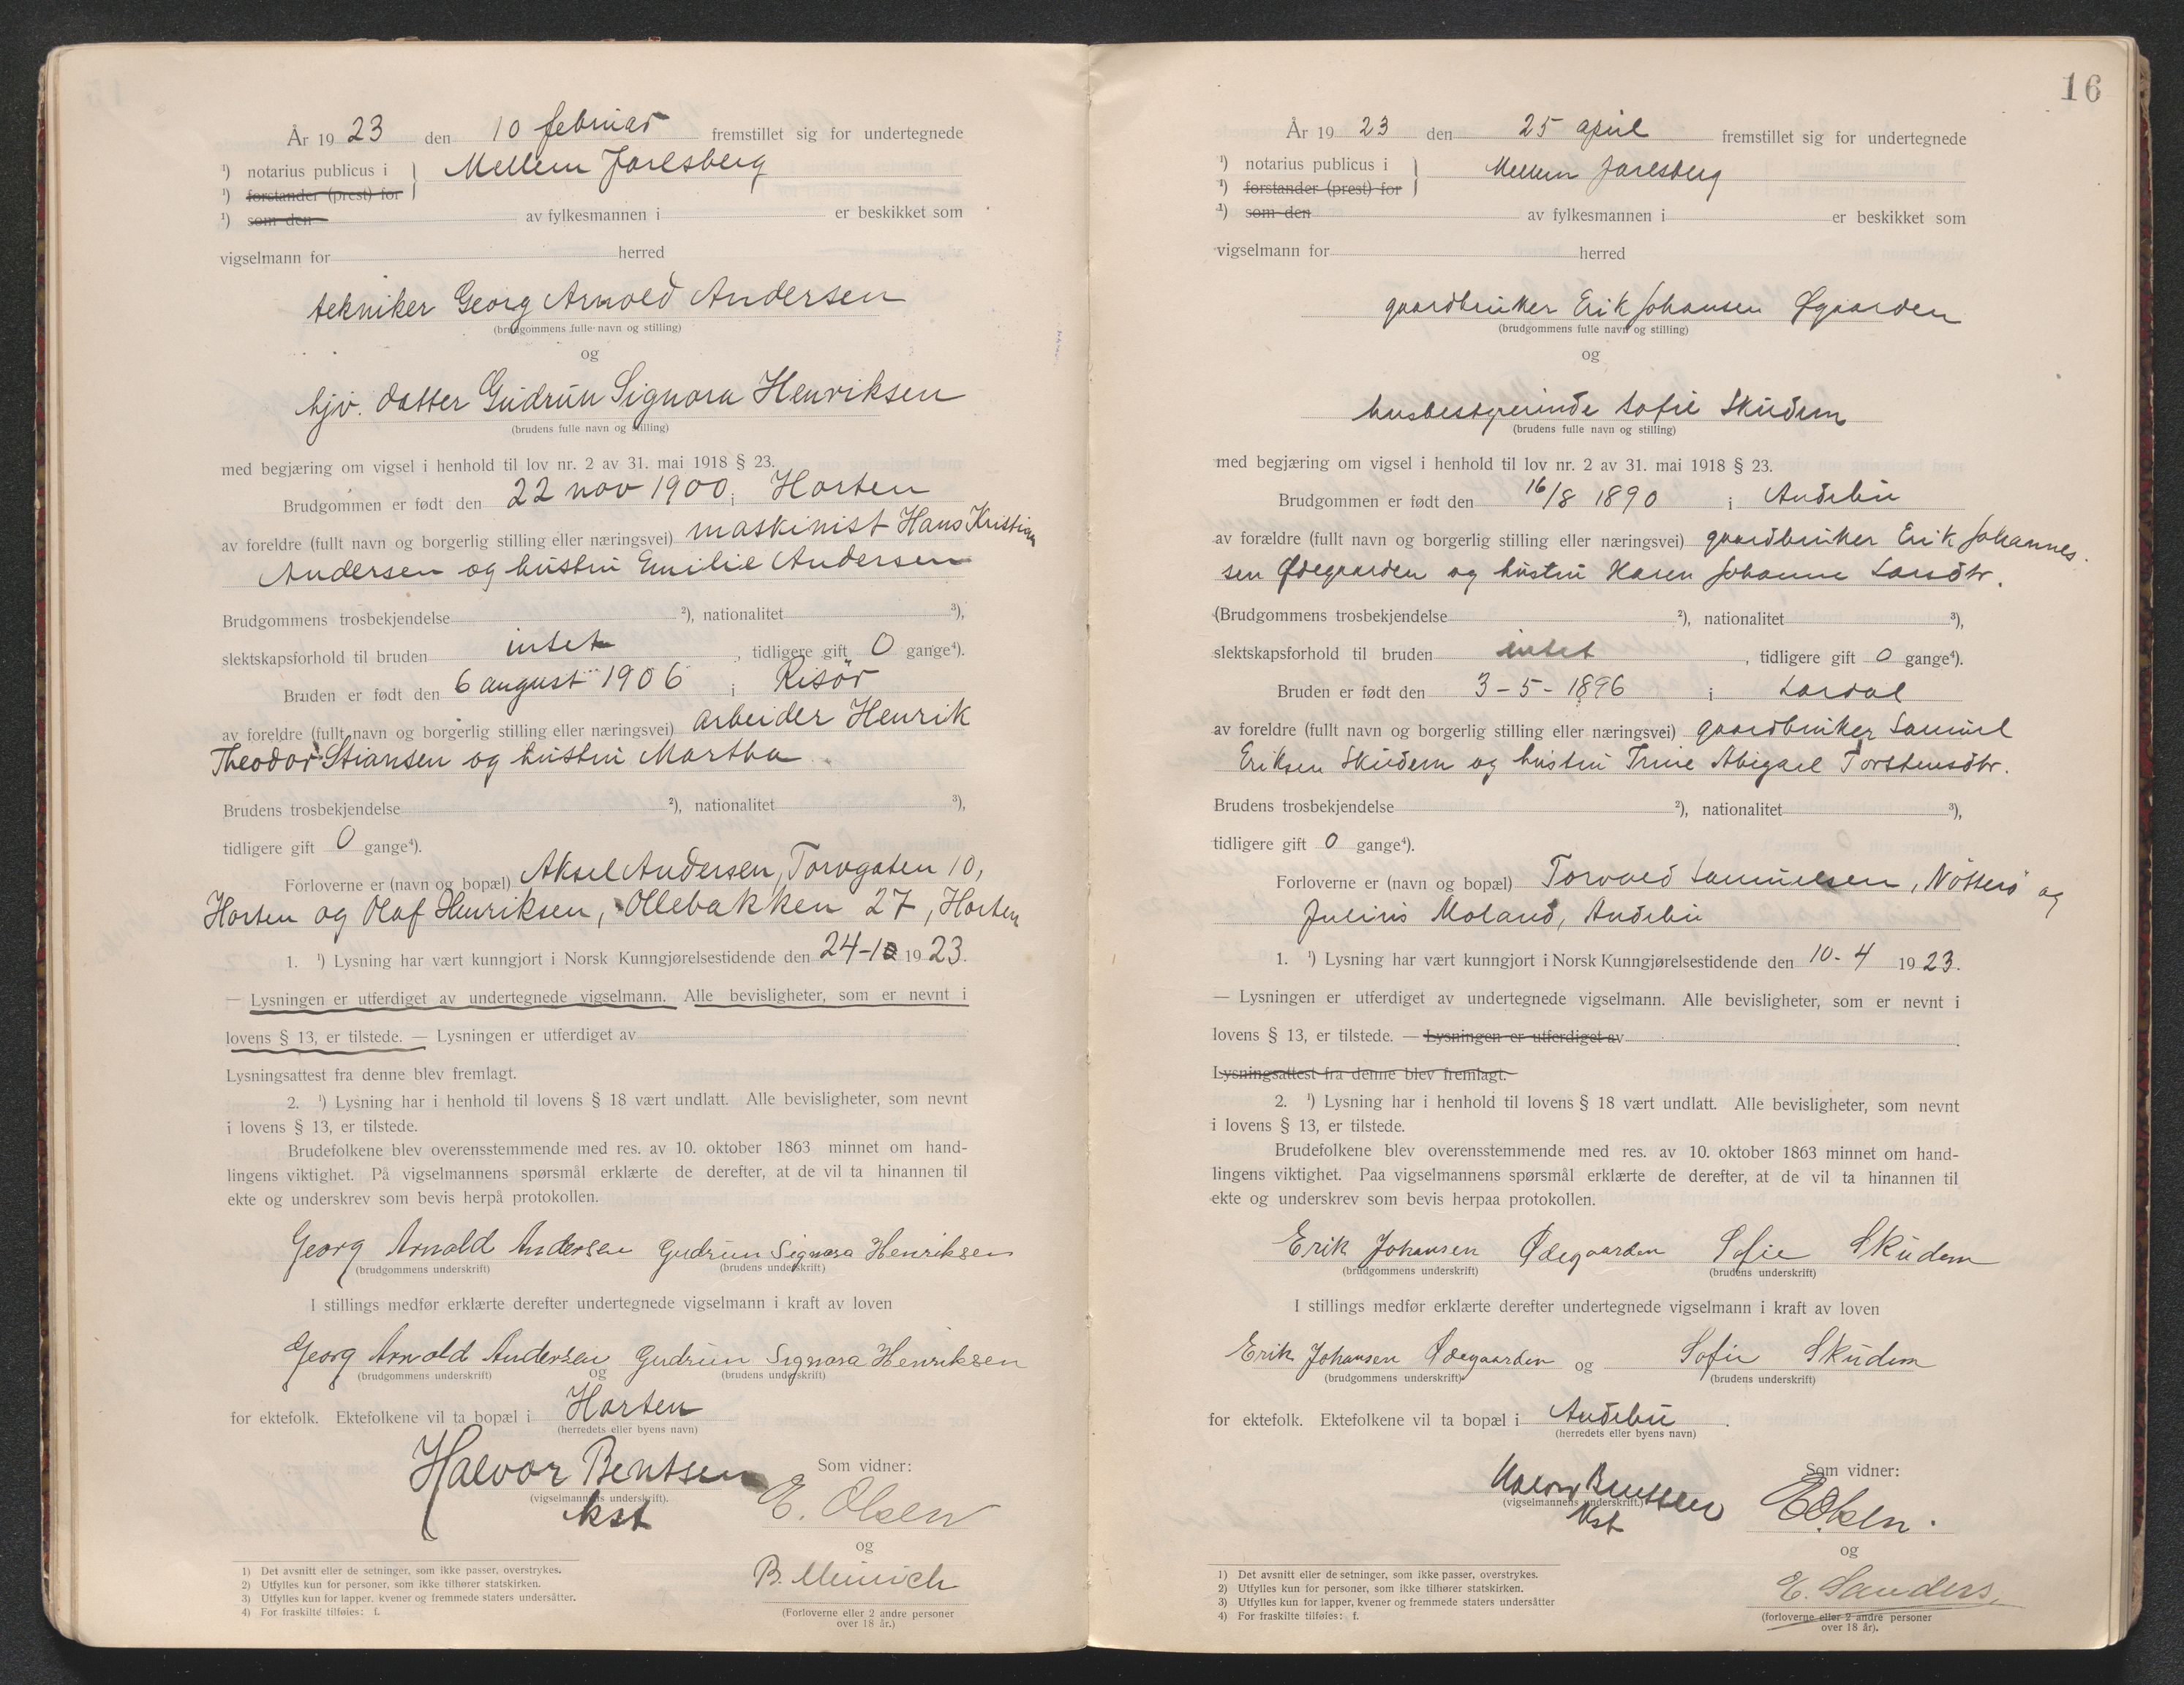 År 1923 den 10 februar fremstillet sig for undertegnede
¹) notarius publicus i } Mellem Jarlsberg
¹) forstander (prest) for
¹) som den av fylkesmannen i er beskikket som
vigselmann for herred
tekniker Georg Arnold Andersen
(brudgommens fulle navn og stilling)
og
hjv. datter Gudrun Signora Henriksen
(brudens fulle navn og stilling)
med begjæring om vigsel i henhold til lov nr. 2 av 31. mai 1918 § 23.
Brudgommen er født den 22 nov 1900 i Horten
av foreldre (fullt navn og borgerlig stilling eller næringsvei) maskinist Hans Kristian
Andersen og hustru Emilie Andersen
Brudgommens trosbekjendelse ²), nationalitet ³),
slektskapsforhold til bruden intet, tidligere gift 0 gange⁴).
Bruden er født den 6 august 1906 i Risör
av foreldre (fullt navn og borgerlig stilling eller næringsvei) arbeider Henrik
Theodor Stiansen og hustru Martha
Brudens trosbekjendelse ²), nationalitet ³),
tidligere gift 0 gange⁴).
Forloverne er (navn og bopæl) Aksel Andersen, Torvgaten 10,
Horten og Olaf Henriksen, Ollebakken 27, Horten
1. ¹) Lysning har vært kunngjort i Norsk Kunngjørelsestidende den 24-1 1923.
— Lysningen er utferdiget av undertegnede vigselmann. Alle bevisligheter, som er nevnt i
lovens § 13, er tilstede. — Lysningen er utferdiget av
Lysningsattest fra denne blev fremlagt.
2. ¹) Lysning har i henhold til lovens § 18 vært undlatt. Alle bevisligheter, som nevnt
i lovens § 13, er tilstede.
Brudefolkene blev overensstemmende med res. av 10. oktober 1863 minnet om hand-
lingens viktighet. På vigselmannens spørsmål erklærte de derefter, at de vil ta hinannen til
ekte og underskrev som bevis herpå protokollen.
Georg Arnold Andersen Gudrun Signora Henriksen
(brudgommens underskrift) (brudens underskrift)
I stillings medfør erklærte derefter undertegnede vigselmann i kraft av loven
Georg Arnold Andersen og Gudrun Signora Henriksen
(brudgommens underskrift) (brudens underskrift)
for ektefolk. Ektefolkene vil ta bopæl i Horten
(herredets eller byens navn)
Halvor Bentsen
(vigselmannens underskrift).
kst
Som vidner:
E. Olsen
og
B. Meinich
(Forloverne eller 2 andre personer
over 18 år.)
1) Det avsnitt eller de setninger, som ikke passer, overstrykes.
2) Utfylles kun for personer, som ikke tilhører statskirken.
3) Utfylles kun for lapper, kvener og fremmede staters undersåtter.
4) For fraskilte tilføies: f.
16
År 1923 den 25 april fremstillet sig for undertegnede
¹) notarius publicus i } Mellem Jarlsberg
¹) forstander (prest) for
¹) som den av fylkesmannen i er beskikket som
vigselmann for herred
gaardbruker Erik Johansen Øgaarden
(brudgommens fulle navn og stilling)
og
husbestyrerinde Sofie Skudem
(brudens fulle navn og stilling)
med begjæring om vigsel i henhold til lov nr. 2 av 31. mai 1918 § 23.
Brudgommen er født den 16/8 1890 i Andebu
av forældre (fullt navn og borgerlig stilling eller næringsvei) gaardbruker Erik Johannes-
sen Ødegaarden og hustru Karen Johanne Larsdtr.
(Brudgommens trosbekjendelse ²), nationalitet ³),
slektskapsforhold til bruden intet, tidligere gift 0 gange⁴).
Bruden er født den 3-5-1896 i Lardal
av foreldre (fullt navn og borgerlig stilling eller næringsvei) gaardbruker Samuel
Eriksen Skudem og hustru Trine Abigael Torstensdtr.
Brudens trosbekjendelse ²), nationalitet ³),
tidligere gift 0 gange⁴).
Forloverne er (navn og bopæl) Torvald Samuelsen, Nötterö og
Julius Moland, Andebu
1. ¹) Lysning har vært kunngjort i Norsk Kunngjørelsestidende den 10-4 1923.
— Lysningen er utferdiget av undertegnede vigselmann. Alle bevisligheter, som er nevnt i
lovens § 13, er tilstede. — Lysningen er utferdiget av
Lysningsattest fra denne blev fremlagt.
2. ¹) Lysning har i henhold til lovens § 18 vært undlatt. Alle bevisligheter, som nevnt
i lovens § 13, er tilstede.
Brudefolkene blev overensstemmende med res. av 10. oktober 1863 minnet om hand-
lingens viktighet. Paa vigselmannens spørsmål erklærte de derefter, at de vil ta hinannen til
ekte og underskrev som bevis herpaa protokollen.
Erik Johansen Ødegaarden Sofie Skudem
(brudgommens underskrift) (brudens underskrift)
I stillings medfør erklærte derefter undertegnede vigselmann i kraft av loven
Erik Johansen Ødegaarden og Sofie Skudem
(brudgommens underskrift) (brudens underskrift)
for ektefolk. Ektefolkene vil ta bopæl i Andebu.
(herredets eller byens navn)
Halvor Bentsen
(vigselmannens underskrift.)
kst
Som vidner:
E Olsen.
og
E. Sanders.
(forloverne eller 2 andre personer
over 18 år).
1) Det avsnitt eller de setninger, som ikke passer, overstrykes.
2) Utfylles kun for personer, som ikke tilhører statskirken.
3) Utfylles kun for lapper, kvener og fremmede staters undersåtter
4) For fraskilte tilføies: f.